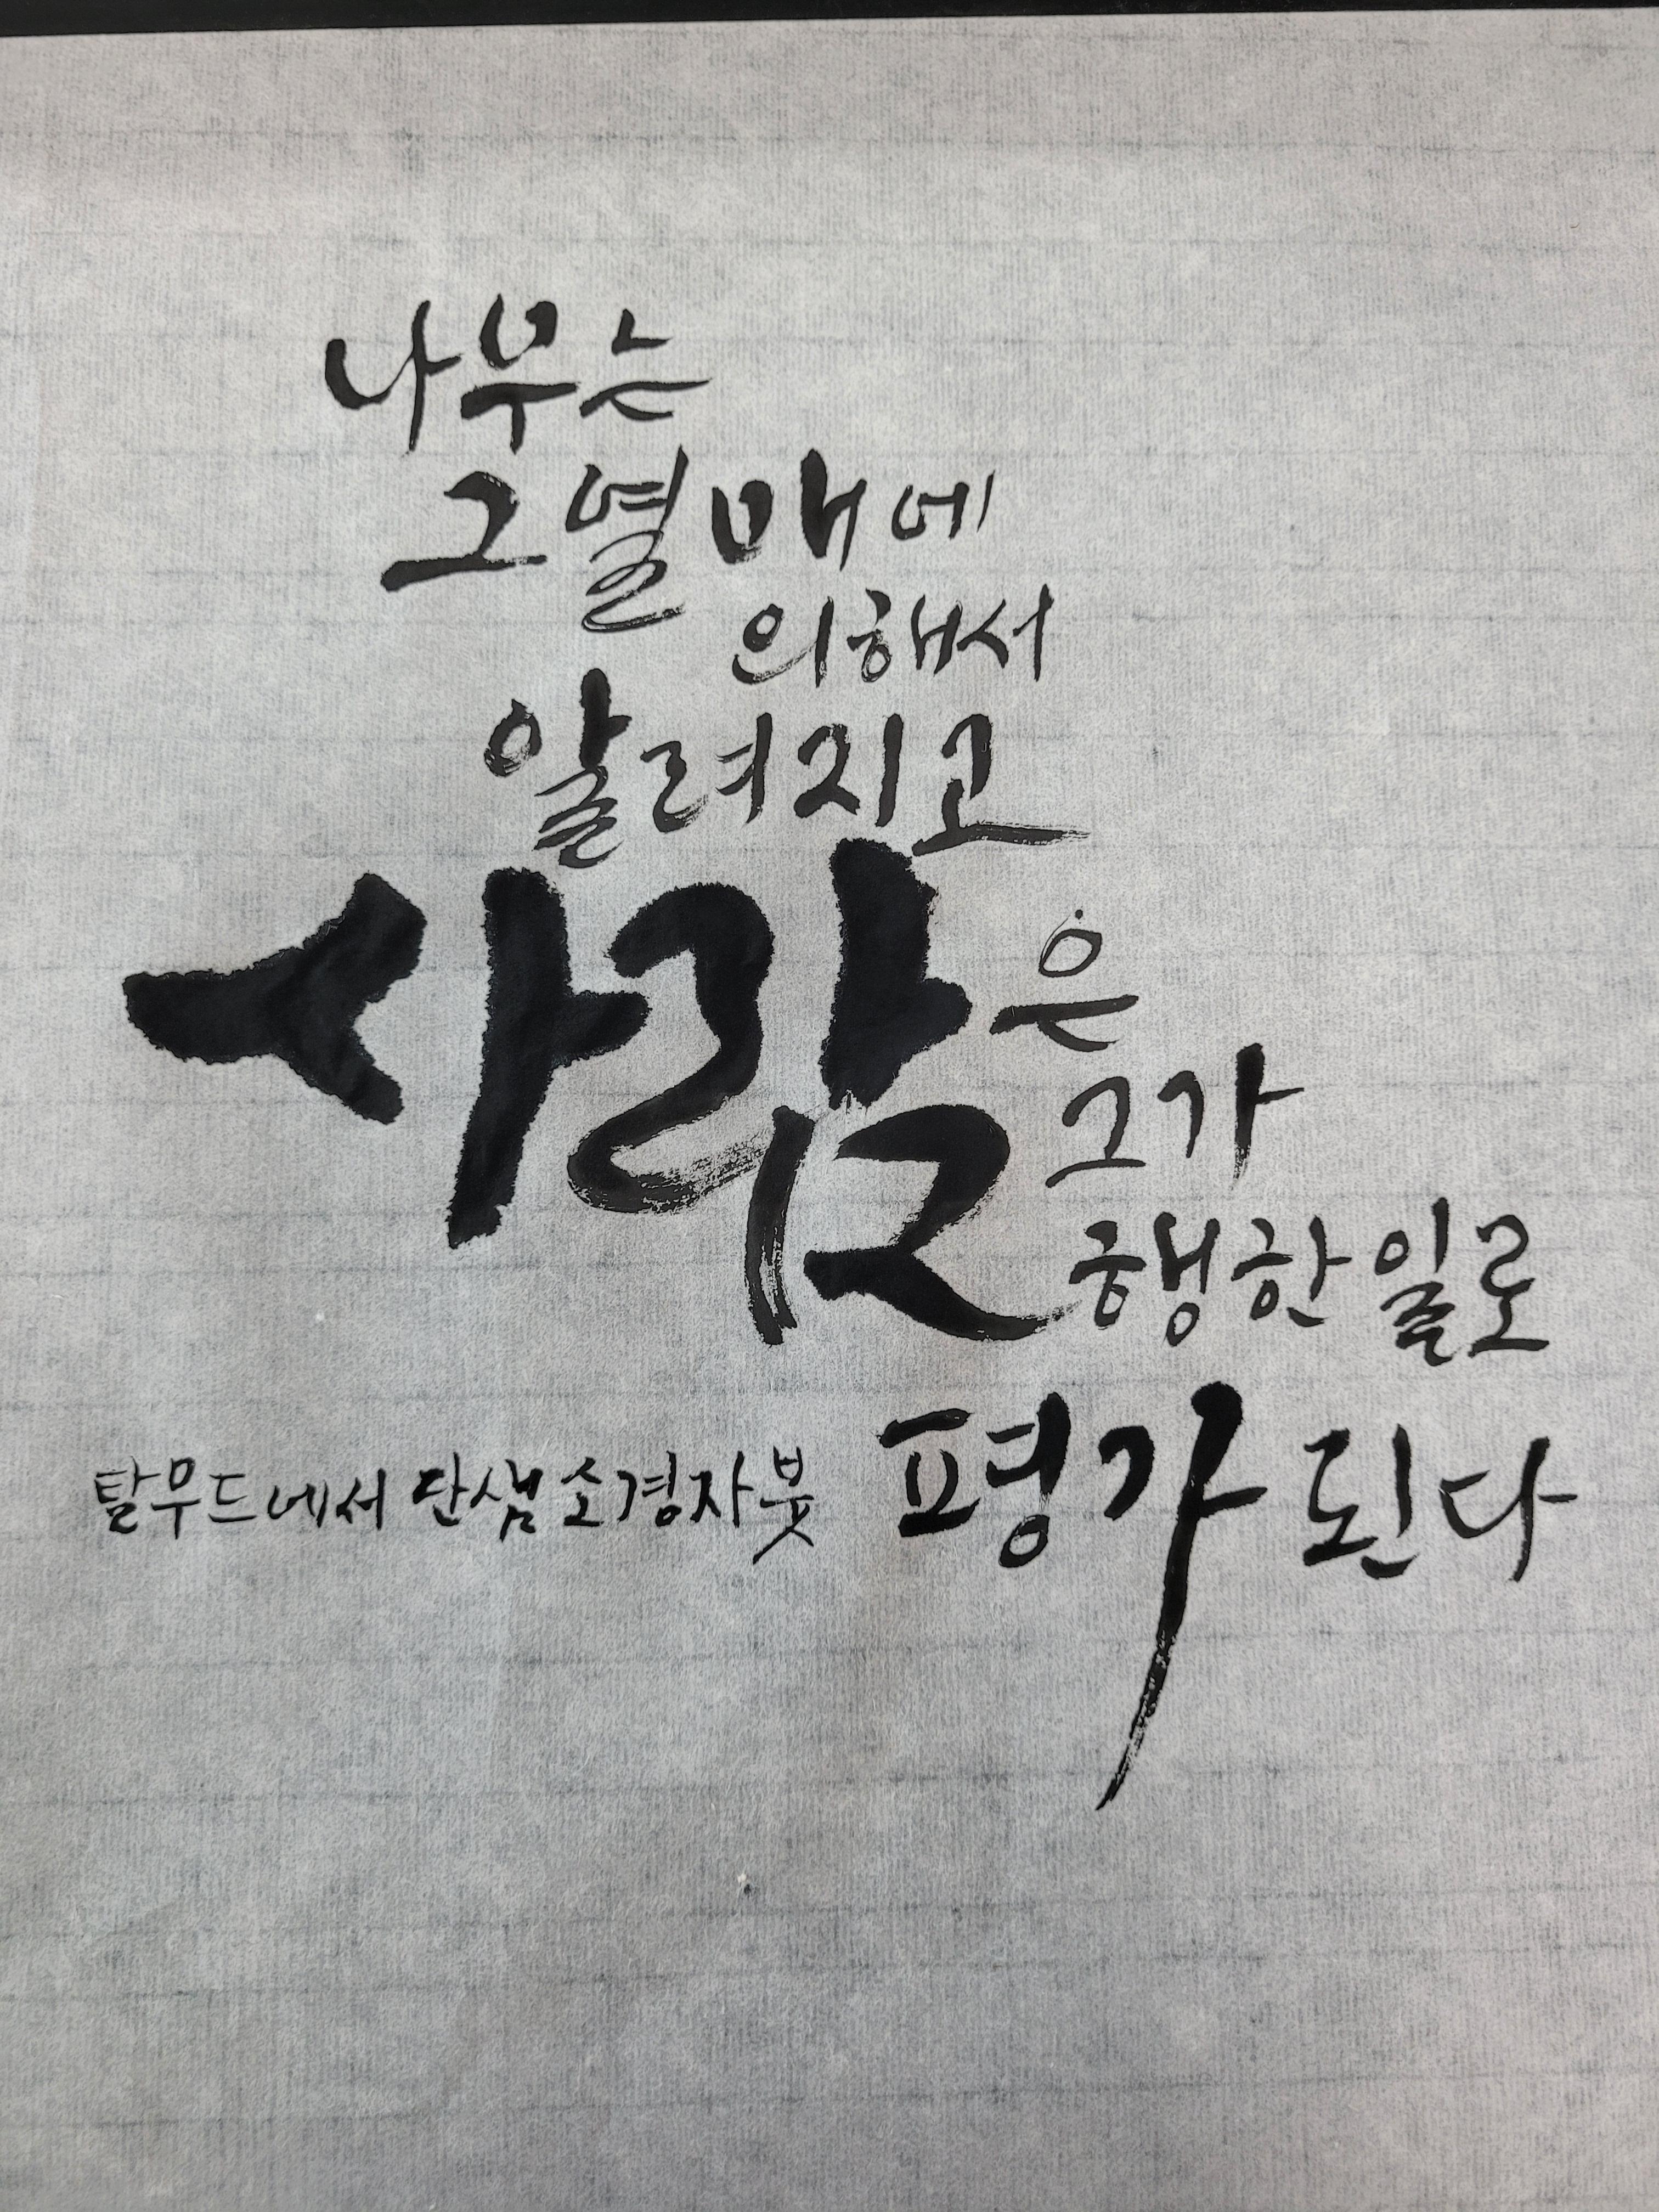 나무는
그 열매에
의해서
알려지고
사람은
그가
행한 일로
평가 된다
탈무드에서 단샘 소경자 붓